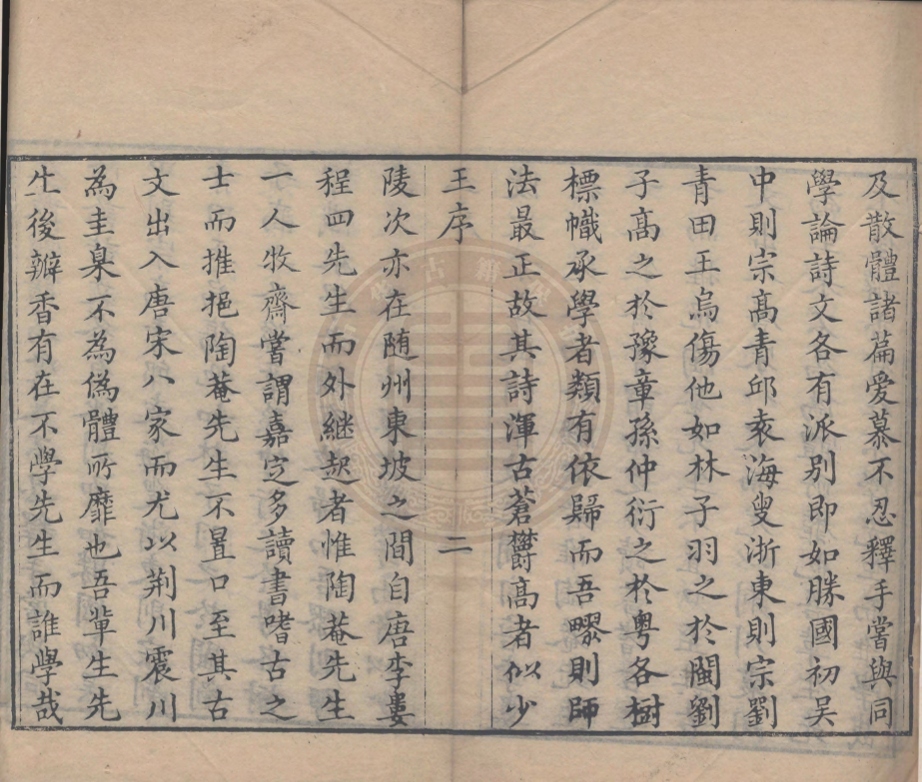 及散體諸篇愛慕不忍釋手嘗與同
學論詩文各有派别即如勝國初吴
中則宗高青邱袁海叟浙東則宗劉
青田王烏傷他如林子羽之於閩劉
子高之於豫章孫仲衍之於粵各樹
標幟承學者類有依歸而吾疁則師
法最正故其詩渾古蒼欝高者似少
王序 二
陵次亦在随州東坡之間自唐李婁
程四先生而外継起者惟陶菴先生
一人牧齋嘗謂嘉定多讀書嗜古之
士而推挹陶菴先生不置口至其古
文出入唐宋八家而尤以荆川震川
為圭臬不為偽體所靡也吾輩生先
生後瓣香有在不學先生而誰學哉